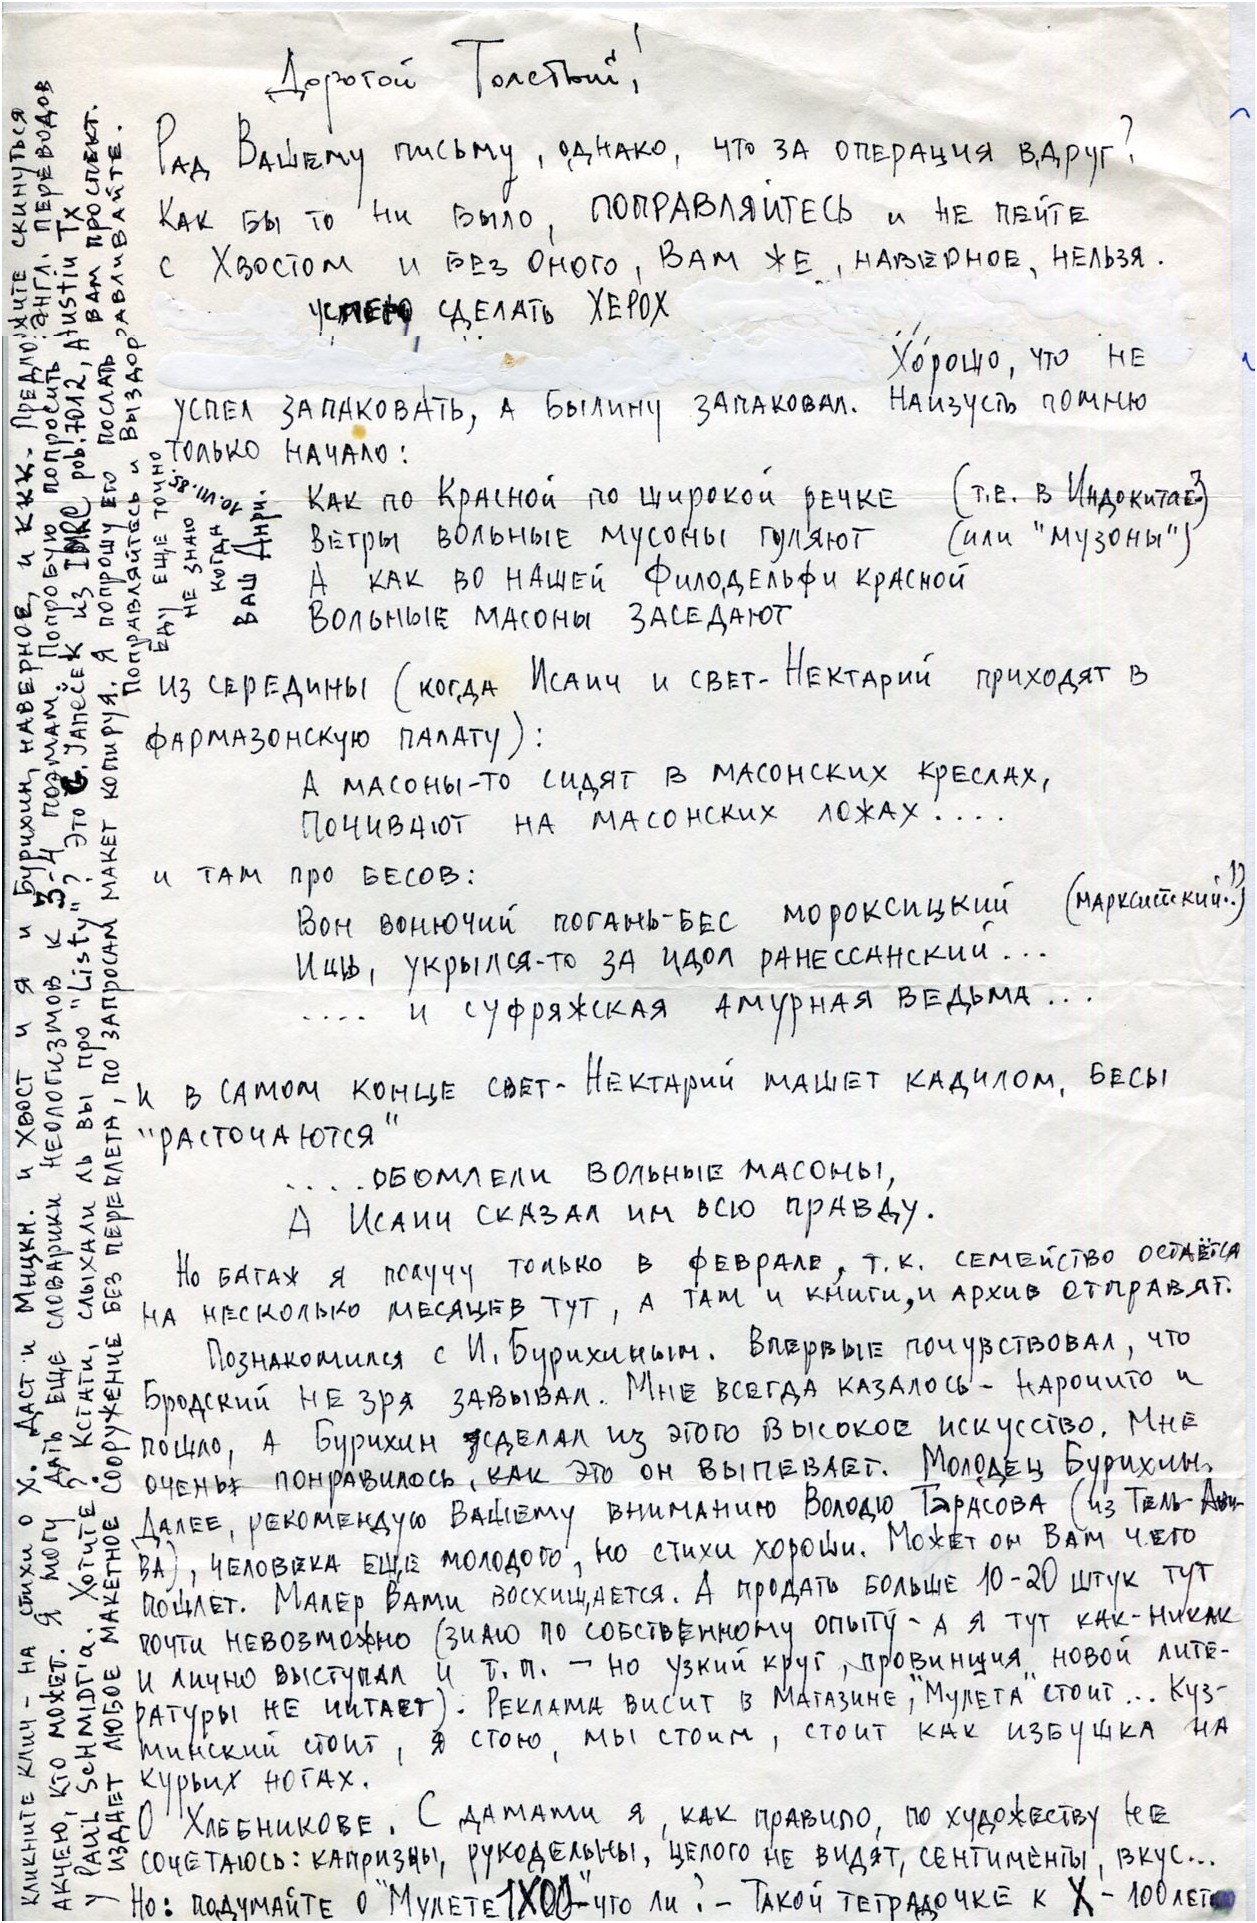 Дорогой Толстый!
Рад Вашему письму, однако, что за операция вдруг?
Как бы то ни было, ПОПРАВЛЯЙТЕСЬ и не пейте
с Хвостом и без оного, Вам же, наверное, нельзя.
успею сделать ХЕРОХ
Хорошо, что не
успел запаковать, а былину запаковал. Наизусть помню
только начало:
Как по Красной по широкой речке (т.е. в Индокитае?)
Ветры вольные мусоны гуляют (или "музоны")
А как во нашей Филодельфи красной
Вольные масоны заседают
из середины (когда Исаич и свет-Нектарий приходят в
фармазонскую палату):
А масоны-то сидят в масонских креслах,
Почивают на масонских ложах....
и там про бесов:
Вон вонючий погань-бес мороксицкий (марксистский?!)
Ишь, укрылся-то за идол ранессанский...
.... и суфряжская амурная ведьма...
и в самом конце свет-Нектарий машет кадилом, бесы
"расточаются"
....обомлели вольные масоны,
А Исаич сказал им всю правду.
Но багаж я получу только в феврале, т.к. семейство остаётся
на несколько месяцев тут, а там и книги, и архив отправят.
Познакомился с И. Бурихиным. Впервые почувствовал, что
Бродский не зря завывал. Мне всегда казалось - нарочито и
пошло, а Бурихин сделал из этого высокое искусство. Мне
очень понравилось, как это он выпевает. Молодец Бурихин.
Далее, рекомендую Вашему вниманию Володю Тарасова (из Тель-Ави-
ва), человека еще молодого, но стихи хороши. Может он Вам чего
пошлет. Малер Вами восхищается. А продать больше 10-20 штук тут
почти невозможно (знаю по собственному опыту - а я тут как-никак
и лично выступал и т.п. - но узкий круг, провинция, новой лите-
ратуры не читает). Реклама висит в магазине, "Мулета" стоит... Куз-
минский стоит, я стою, мы стоим, стоит как избушка на
курьих ногах.
О Хлебникове. С датами я, как правило, по художеству не
сочетаюсь: капризны, рукодельны, целого не видят, сентименты, вкус...
Но: подумайте о "Мулете 1Х00" что ли? - Такой тетрадочке к Х - 100лет
кликните клич - на стихи о Х. Даст и Мнцкн. и Хвост и я и Бурихин, наверное, и ККК. Предложите скинуться
акчею, кто может. Я могу дать еще словарики неологизмов к 3-4 поэмам. Попробую попросить англ. переводов
у Paul Schmidt'а. Хотите? Кстати, слыхали ль вы про "Listy"? Это G. Janeček из IMRC pob. 7012, Austin TX
издает любое макетное сооружение без переплета, по запросам макет копируя. Я попрошу его послать Вам проспект.
Поправляйтесь и Выздоравливайте.
Еду еще точно
не знаю
когда
10.VII.85.
Ваш Анри.